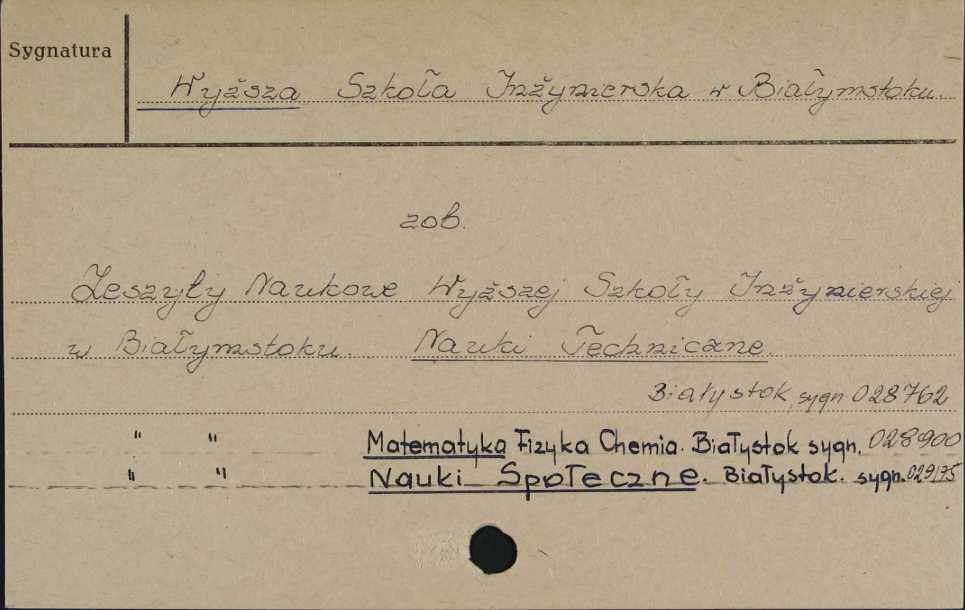 Sygnatura
Wyższa Szkoła Inżynierska w Białymstoku.
zob.
Zeszyty Naukowe Wyższej Szkoły Inżynierskiej
w Białymstoku. Nauki Techniczne.
Białystok, sygn 028762
" " Matematyka Fizyka Chemia. Białystok sygn. 028900
" " Nauki Społeczne. Białystok. sygn. 029175